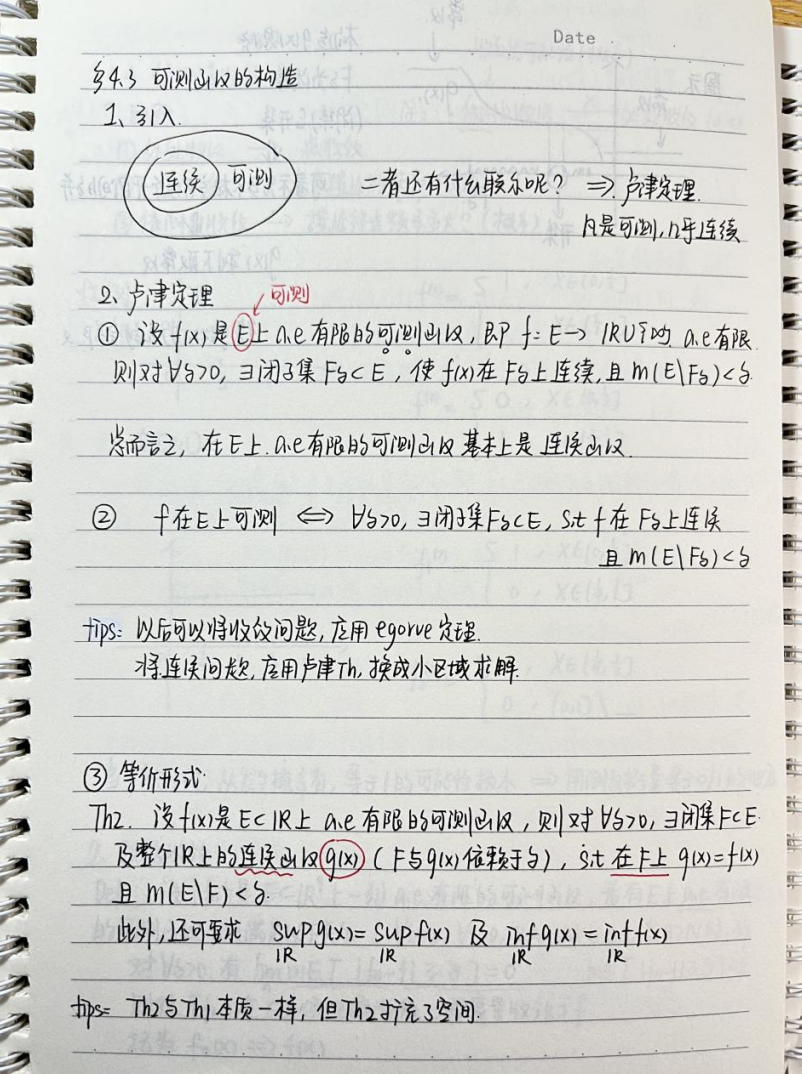 Date
§4.3 可测函数的构造
1、引入.
连续 可测 二者还有什么联系呢? ⇒ 卢津定理.
凡是可测,几乎连续
2、卢津定理 可测
① 设f(x)是E上a.e有限的可测函数,即 f: E→ IRU{±∞} a.e有限.
则对∀δ>0,∃闭子集 Fδ⊂E,使f(x)在Fδ上连续,且m(E\Fδ)<δ.
总而言之,在E上.a.e有限的可测函数基本上是连续函数.
② f在E上可测 ⇔ ∀δ>0,∃闭子集Fδ⊂E, s.t f在Fδ上连续
且m(E\Fδ)<δ
tips: 以后可以将收敛问题,应用egorve定理.
将连续问题,应用卢津Th,换成小区域求解.
③ 等价形式.
Th2. 设f(x)是E⊂IR上 a.e有限的可测函数,则对∀δ>0,∃闭集F⊂E.
及整个IR上的连续函数g(x)(F与g(x)依赖于δ), s.t 在F上 g(x)=f(x)
且 m(E\F)<δ.
此外,还可要求 sup g(x)= sup f(x) 及 inf g(x) = inf f(x)
IR IR IR IR
tips= Th2与Th1本质一样,但Th2扩充了空间.